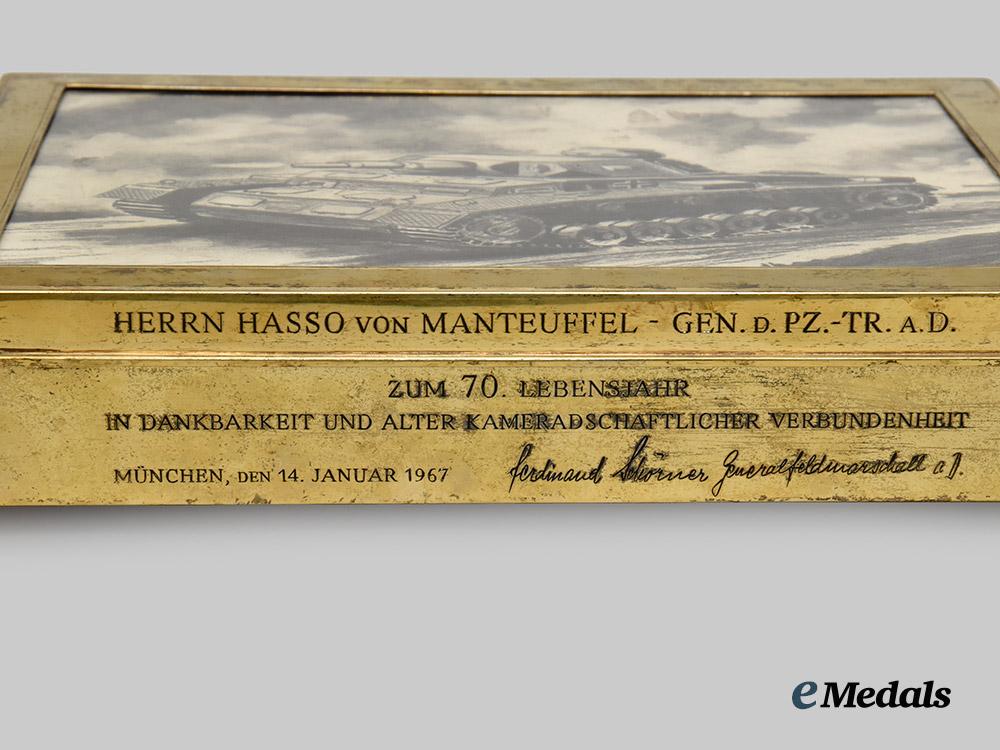 HERRN HASSO VON MANTEUFFEL - GEN. D. PZ.-TR. A.D.
ZUM 70. LEBENSJAHR
IN DANKBARKEIT UND ALTER KAMERADSCHAFTLICHER VERBUNDENHEIT
MÜNCHEN, DEN 14. JANUAR 1967 Ferdinand Schörner Generalfeldmarschall a.D.
eMedals